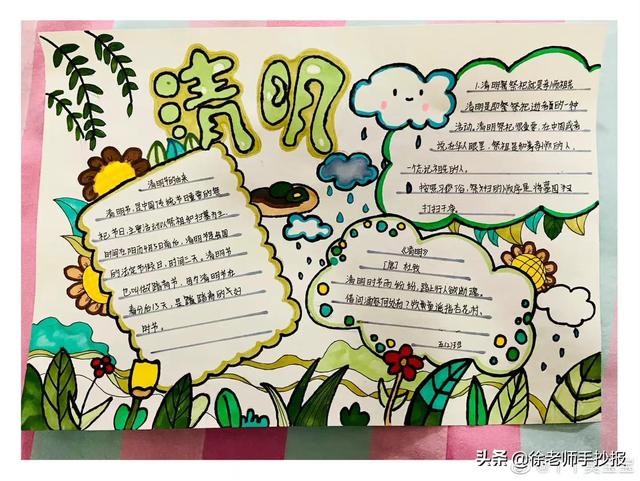 清明
清明节的由来
清明节,是中国传统节日重要的祭
祀节日,主要活动以祭祖和扫墓为主.
时间在阳历4月5日前后,清明节是我国
的法定节假日,时间三天。清明节
也叫做踏青节,每年清明节在
春分后15天,是踏青的大好
时节。
1.清明祭祭祀就是孝顺祖先
清明是即祭祭祀进孝道的一种
活动,清明祭祀很重要,在中国或者
说在华人眼里,祭祖是知孝孝顺的人,
一个忘记祖先的人.
按照习俗,祭扫的顺序是将墓园
打扫干净.
《清明》
[唐] 杜牧
清明时节雨纷纷,路上行人欲断魂。
借问酒家何处有?牧童遥指杏花村。
头条 @徐老师手抄报